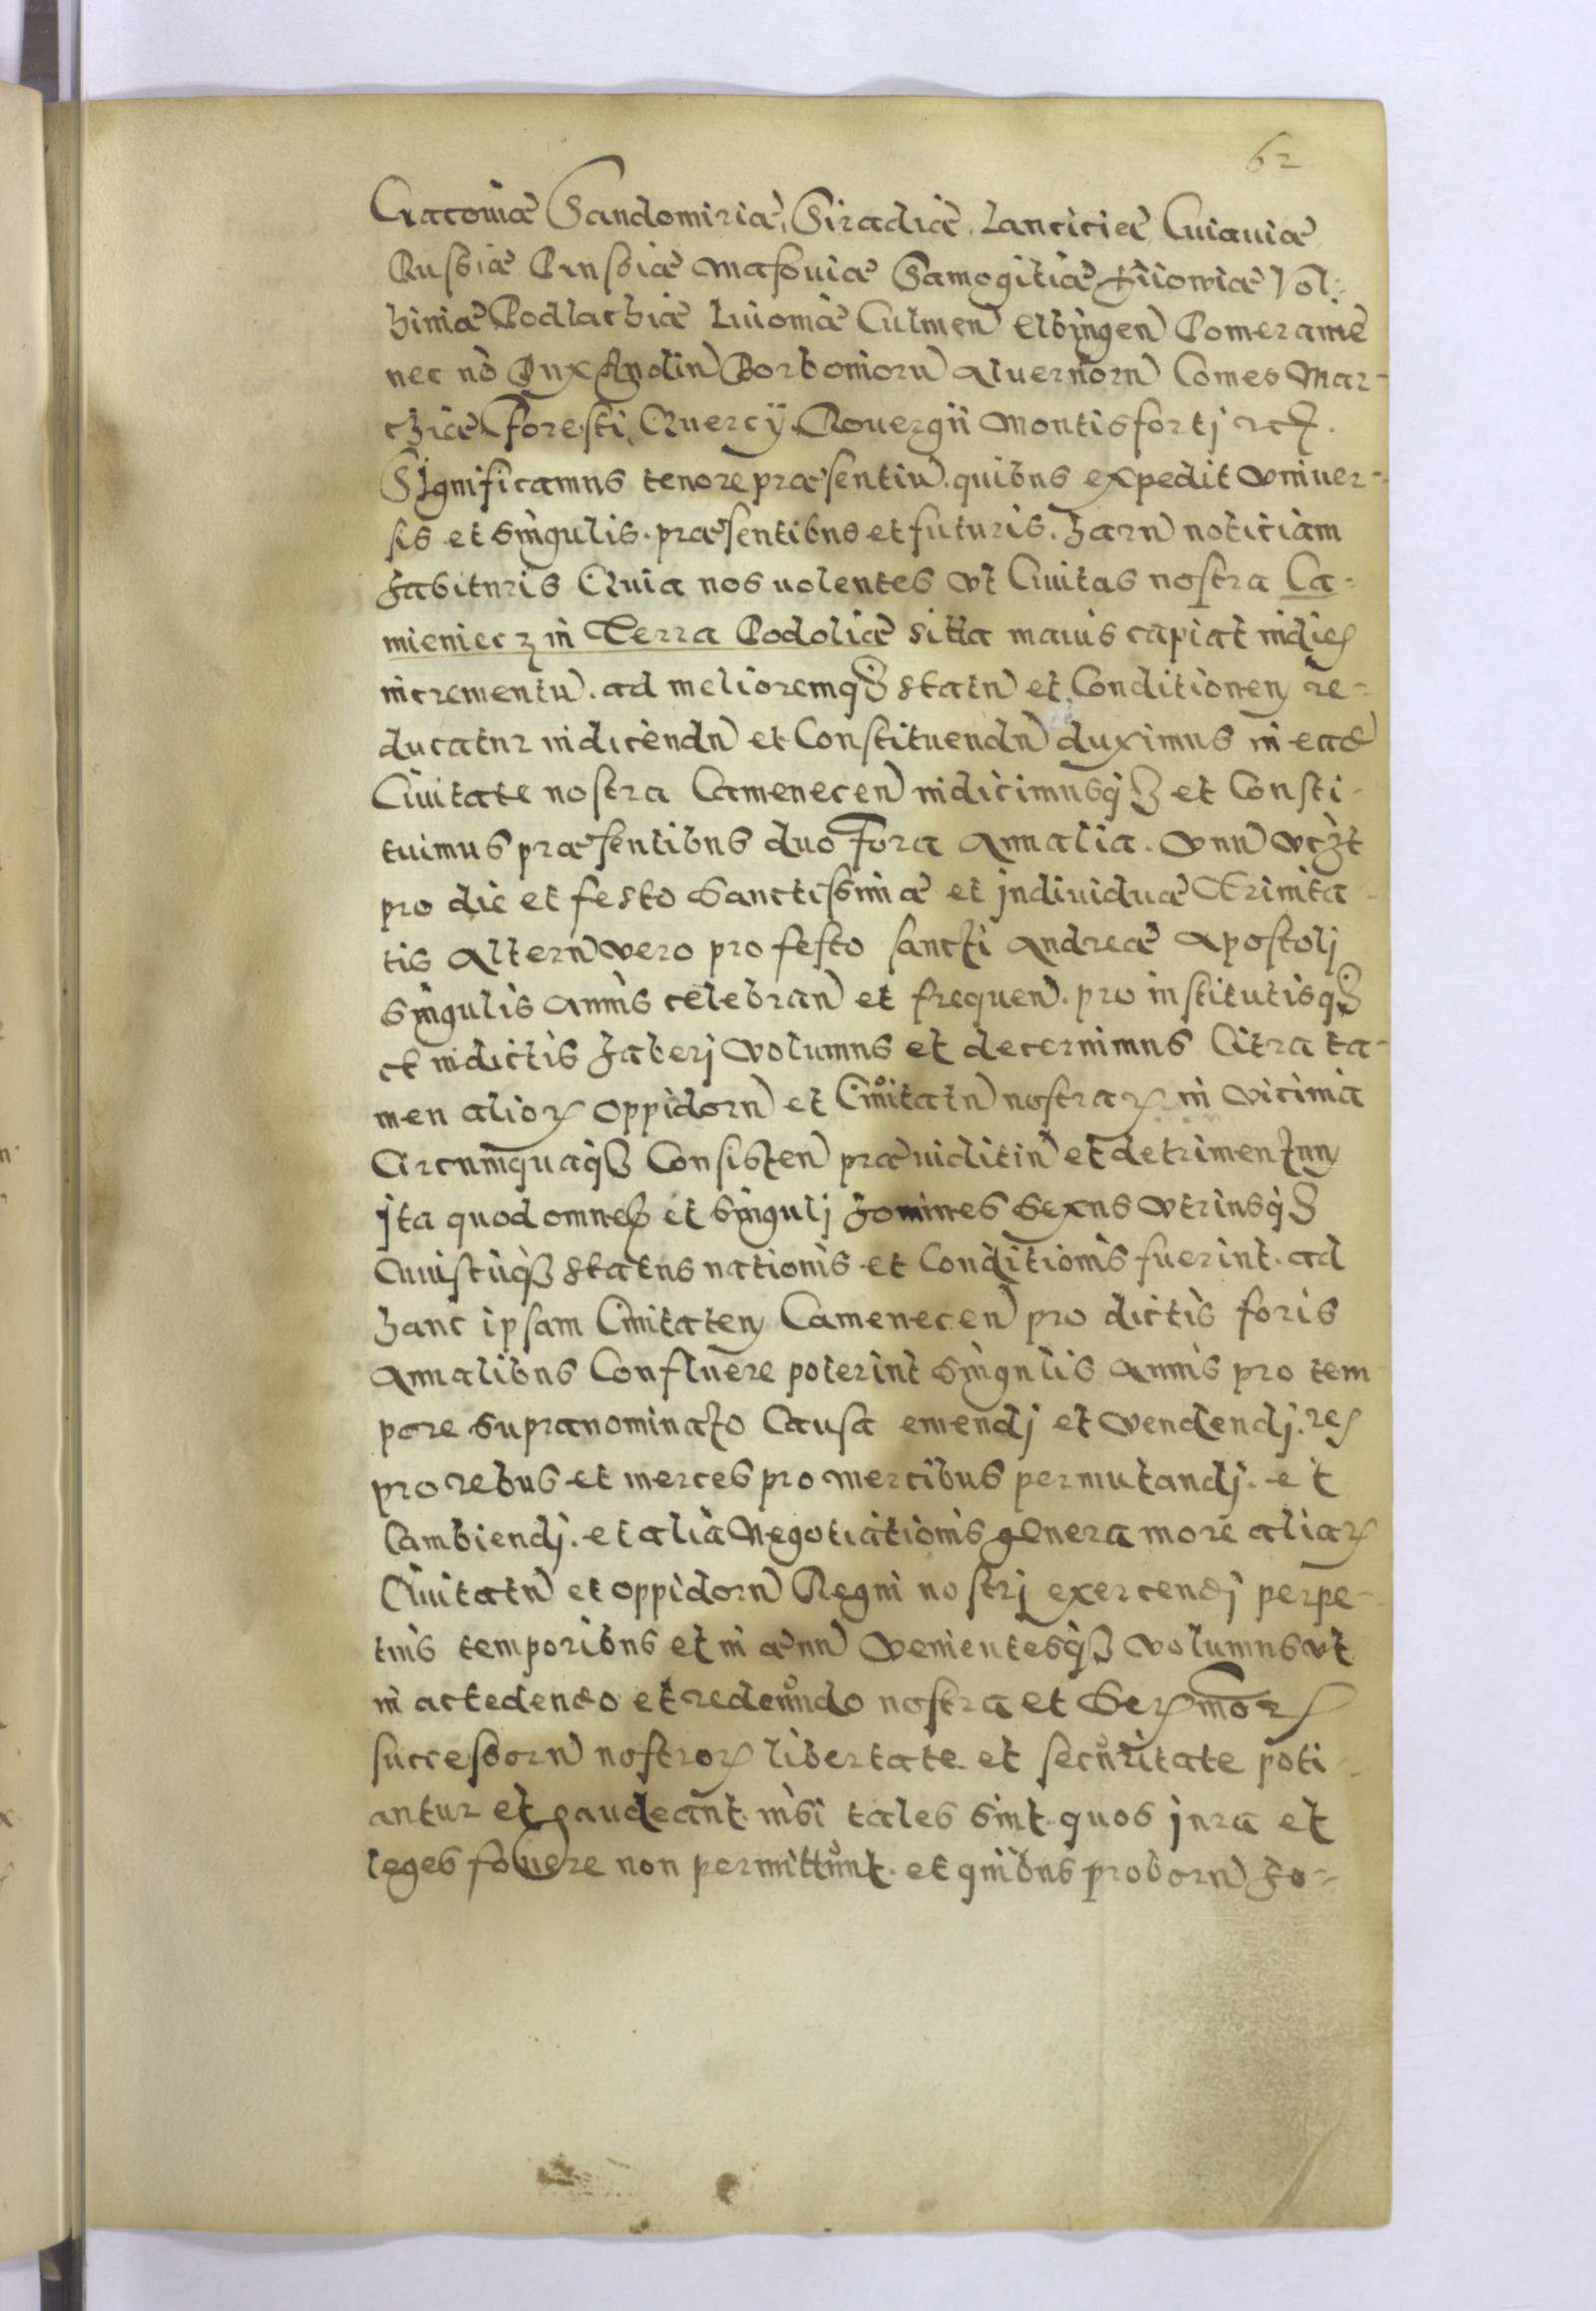 62
Cracoviæ Sandomiriæ, Siradiæ. Lanciciæ Cuiaviæ
Russiæ Prussiæ Masoviæ Samogitiæ Kiioviæ Vol:
hiniæ Podlachiæ Livoniæ Culmen Elbingen Pomeraniæ
nec nō Dux Andin Borboniorū Aluernorū Comes Mar-
chiæ Foresti, Quercÿ Rouergii Montisfortj etc.
Significamus tenore præsentiū. quibus expedit vniuer-
sis et singulis. præsentibus et futuris. harū noticiam
habituris Quia nos uolentes vt Ciuitas nostra Ca-
mieniecz in Terra Podoliæ sitta maius capiat indies
incrementū. ad melioremqꝫ statū et Conditionem re-
ducatur indicendū et Constituendū duximus in eadē
Ciuitate nostra Camenecen indicimusqꝫ et Consti-
tuimus præsentibus duo Fora Annalia. Vnū vcꝫt
pro die et festo Sanctissimæ et indiuiduæ Trinita-
tis Alterū vero pro festo sancti Andreæ Apostolj
singulis annis celebran et frequen. pro institutisqꝫ
et indictis haberj volumus et decernimus Citra ta-
men alioꝝ oppidorū et Ciuitatū nostraꝝ in vicinia
Circumquaqꝫ Consisten præiuditiū et detrimentum
ita quod omnes et singulj homines sexus vtriusqꝫ
Cuiuscūqꝫ status nationis et Conditionis fuerint. ad
hanc ipsam Ciuitatem Camenecen pro dictis foris
Annalibus Confluere poterint singulis annis pro tem
pore supranominato Causa emendj et vendendj. res
pro rebus et merces pro mercibus permutandj. et
Cambiendj. et alia Negotiationis genera more aliaꝝ
Ciuitatū et oppidorū Regni nostrj exercendj perpe-
tuis temporibus et in æuū Venientesqꝫ volumus vt
in accedendo et redeundo nostra et Serᵐoꝝ
successorū nostroꝝ libertate et securitate poti-
antur et gaudeant. nisi tales sint quos iura et
leges fovere non permittunt. et quibus proborū ho-